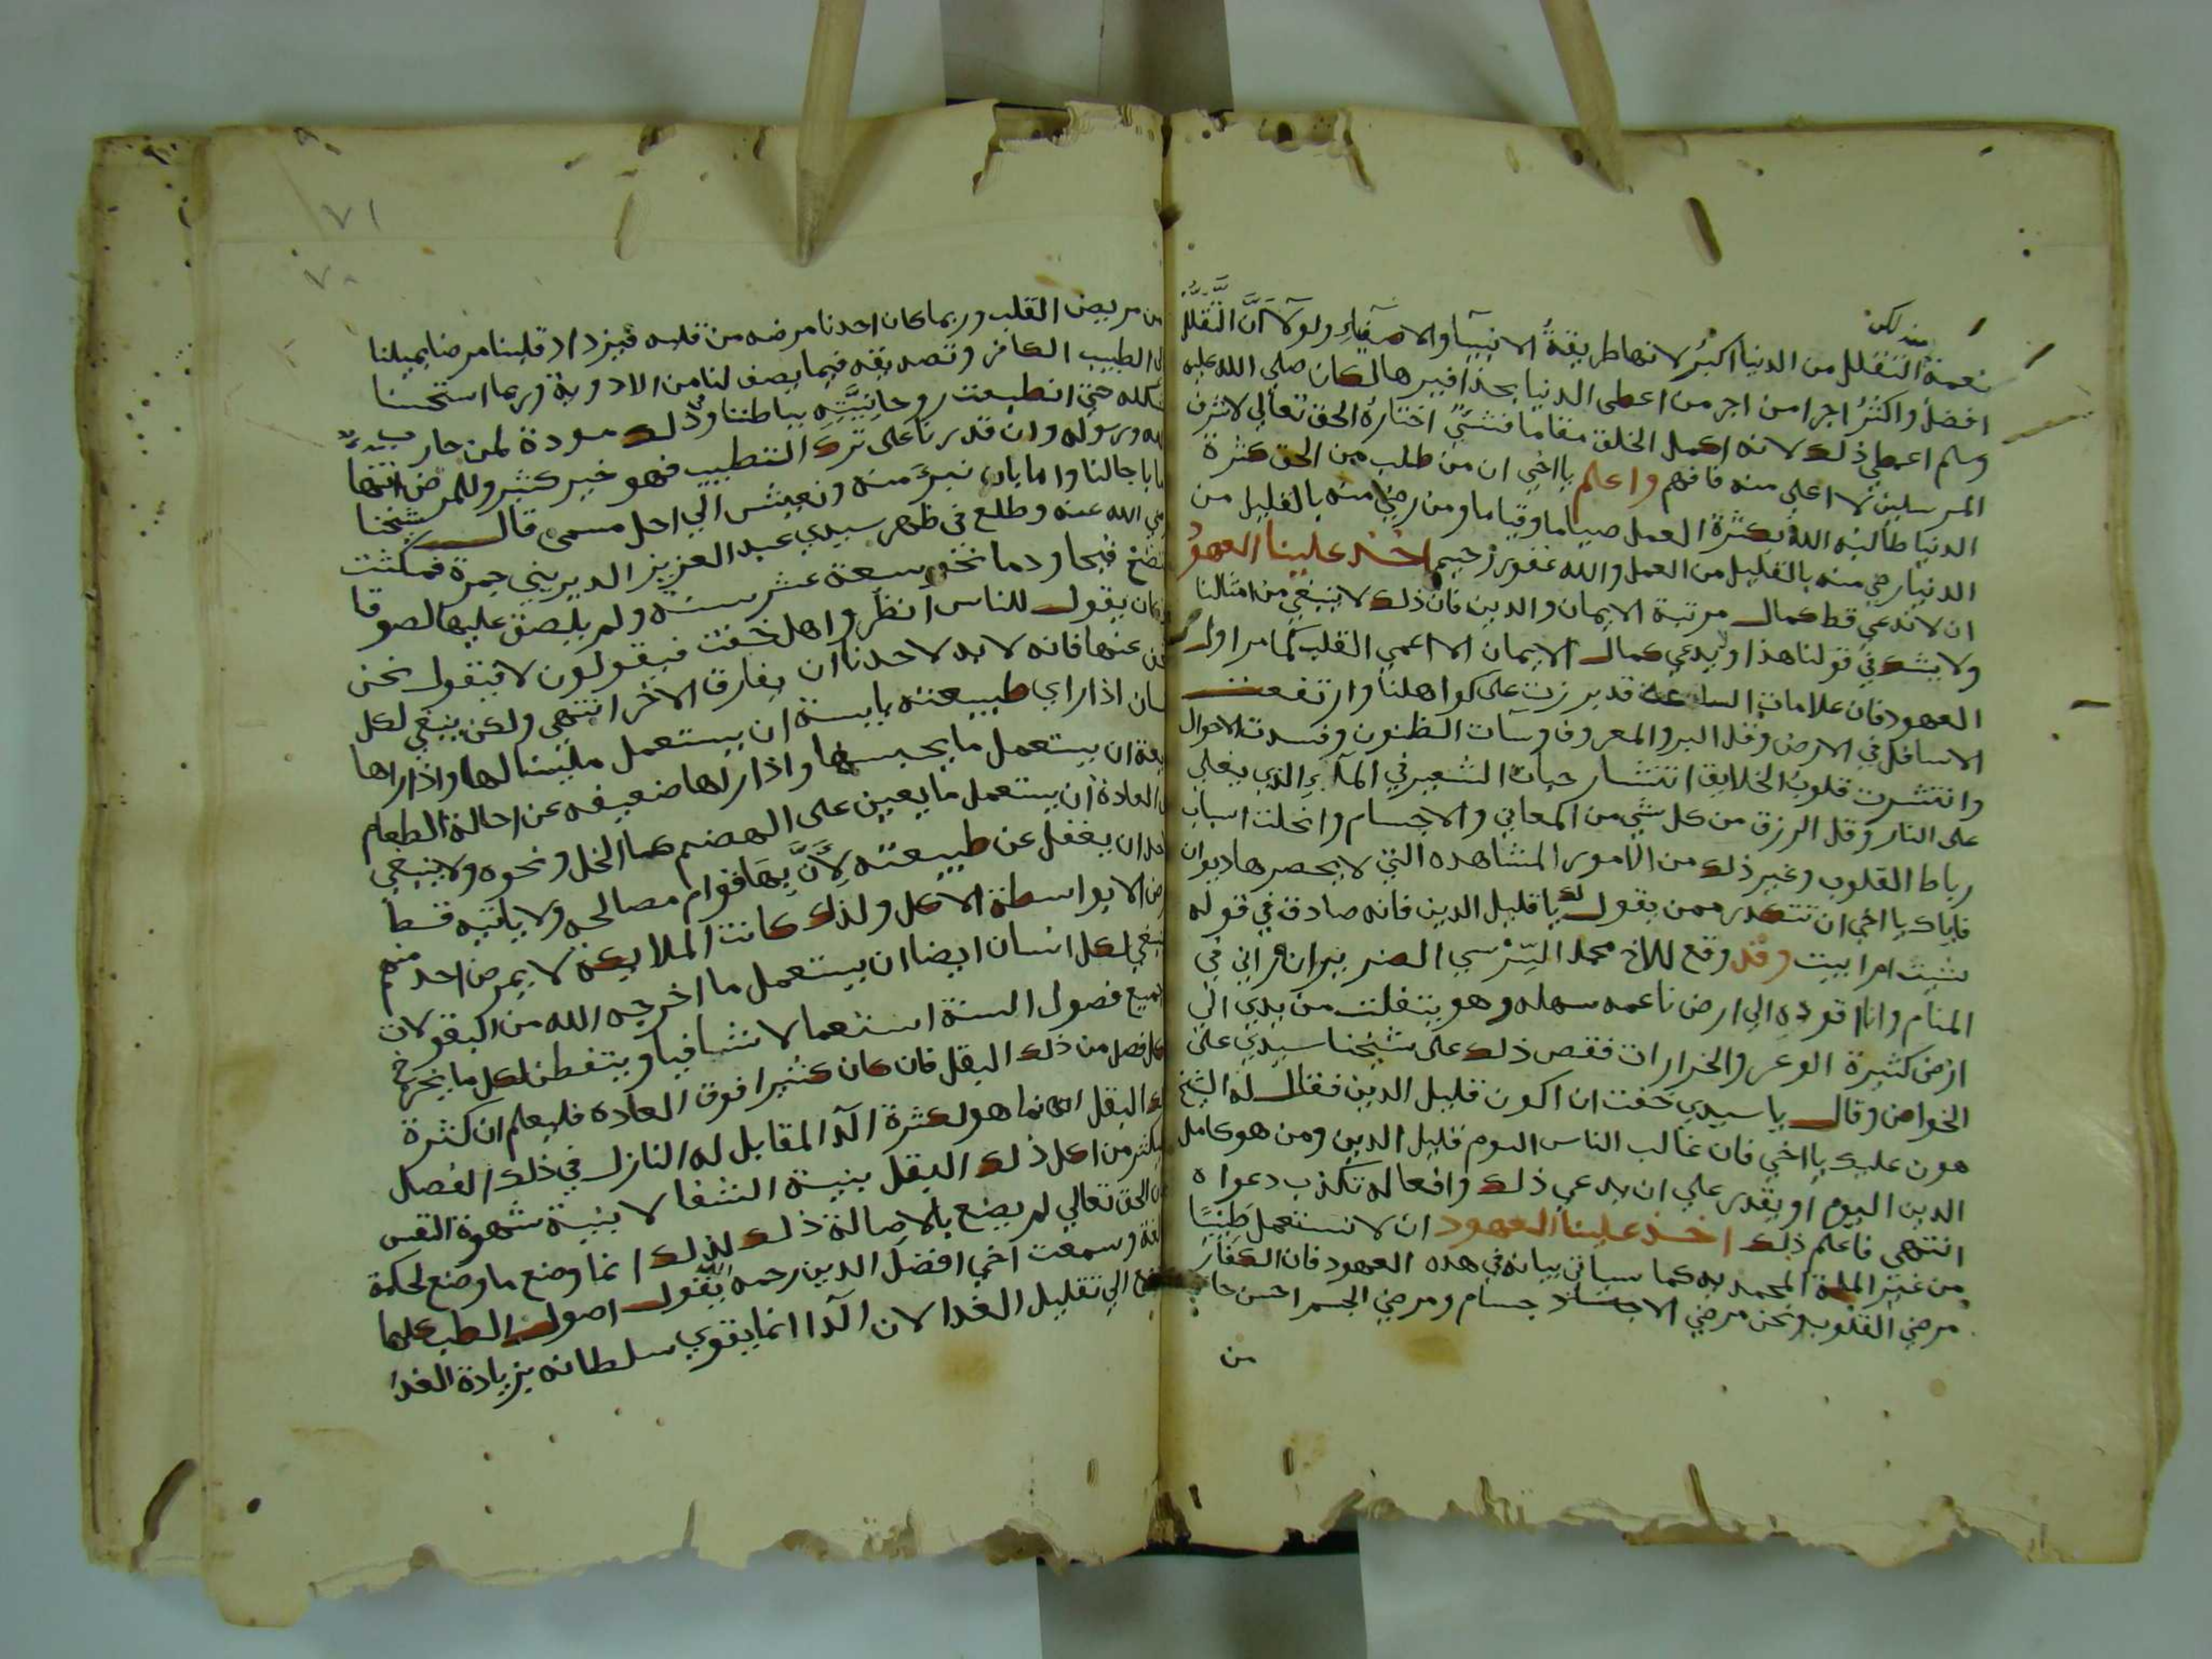 منه لكن
نعمة التقلل من الدنيا اكبر لانها طريقة الانبيآ والاصفيآء ولولا ان التقلل
افضل واكثر اجرا من اجر من اعطى الدنيا بحذافيرها لكان صلى الله عليه
وسلم اعطي ذلك لانه اكمل الخلق مقاما فشئ اختاره الحق تعالي لاشرف
المرسلين لا اعلى منه فافهم واعلم يا اخي ان من طلب من الحق كثرة
الدنيا طالبه الله بكثرة العمل صياما وقياما ومن رضي منه بالقليل من
الدنيا رضي منه بالقليل من العمل والله غفور رحيم اخذ علينا العهود
ان لا ندعي قط كمال مرتبة الايمان والدين فان ذلك لا ينبغي من امثالنا
ولا يشك في قولنا هذا ويدعي كمال الايمان الا اعمي القلب كما مر اول
العهود فان علامات الساعة قد برزت على كواهلنا وارتفعت
الاسافل في الارض وقل البر والمعروف وسآت الظنون وفسدت الاحوال
وانتشرت قلوب الخلايق انتشار حبات الشعير في المآء الذي يغلي
على النار وقل الرزق من كل شي من المعاني والاجسام وانحلت اسباب
رباط القلوب وغير ذلك من الامور المشاهده التي لا يحصرها ديوان
فاياك يا اخي ان تتكدر ممن يقول لك يا قليل الدين فانه صادق في قوله
شئت ام ابيت وقد وقع للاخ محمد السرسي الضرير انه راني في
المنام وانا اقوده الي ارض ناعمه سهله وهو يتفلت من يدي الي
ارض كثيرة الوعر والخرارات فقص ذلك على شيخنا سيدي علي
الخواص وقال يا سيدي خفت ان اكون قليل الدين فقال له الشيخ
هون عليك يا اخي فان غالب الناس اليوم قليل الدين ومن هو كامل
الدين اليوم او يقدر علي ان يدعي ذلك وافعاله تكذب دعواه
انتهي فاعلم ذلك اخذ علينا العهود ان لا نستعمل طبيبا
من غير الملة المحمديه كما سياتي بيانه في هذه العهود فان الكفار
مرضي القلوب ونحن مرضي الاجسام ومرضي الجسم احسن حالا
من
٧١
٧٠
من مريض القلب وربما كان احدنا مرضه من قلبه فيزداد قلبنا مرضا بميلنا
الي الطبيب الكافر وتصديقه فيما يصف لنا من الادوية وربما استحسنا
شكله حتي انطبعت روحانيته بباطننا وفي ذلك مودة لمن حارب
الله ورسوله وان قدرنا على ترك التطبيب فهو خير كثير وللمرض انتها
اما باجالنا واما بان نبرء منه ونعيش الي اجل مسمى قال شيخنا
رضي الله عنه وطلع في ظهر سيدي عبد العزيز الديريني جمرة فمكثت
تنضخ قيحا ودما نحو سبعة عشر سنة ولم يلصق عليها لصوقا
وكان يقول للناس انظروا هل خفت فيقولون لا فيقول نحن
عنها فانه لا بد لاحدنا ان يفارق الاخر انتهي ولكن ينبغي لكل
انسان اذا راي طبيعته يابسة ان يستعمل ملينا لها واذا راها
ان يستعمل ما يحبسها واذا راها ضعيفه عن احالة الطعام
العادة ان يستعمل ما يعين على الهضم كالخل ونحوه ولا ينبغي
لاحد ان يغفل عن طبيعته لان بها قوام مصالحه ولا ياتيه قط
مرض الا بواسطة الاكل ولذلك كانت الملايكة لا يمرض احد منهم
وينبغي لكل انسان ايضا ان يستعمل ما اخرجه الله من البقولات
في جميع فصول السنة استعمالا شافيا ويتفطن لكل ما يخرج
في كل فصل من ذلك البقل فان كان كثيرا فوق العاده فليعلم ان كثرة
ذلك البقل انما هو لكثرة الدآ المقابل له النازل في ذلك الفصل
فليكثر من اكل ذلك البقل بنية الشفا لا بنية شهوة النفس
فان الحق تعالي لم يضع بالاصالة ذلك لذلك انما وضع ما وضع لحكمة
وسمعت اخي افضل الدين رحمه الله يقول اصول الطب كلها
ترجع الي تقليل الغدا لان الدآ انما يقوي سلطانه بزيادة الغدا